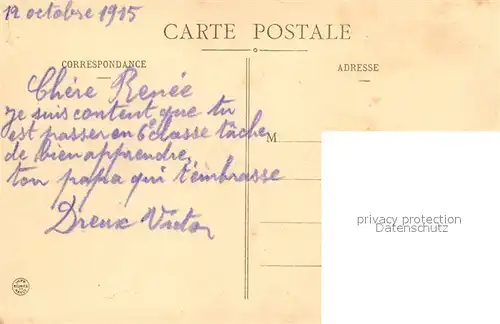 12 octobre 1915
CARTE POSTALE
CORRESPONDANCE
ADRESSE
Chère Renée
je suis content que tu
est passer en 6e classe tâche
de bien apprendre,
ton papa qui t'embrasse
Dreux Victor
M
privacy protection
Datenschutz